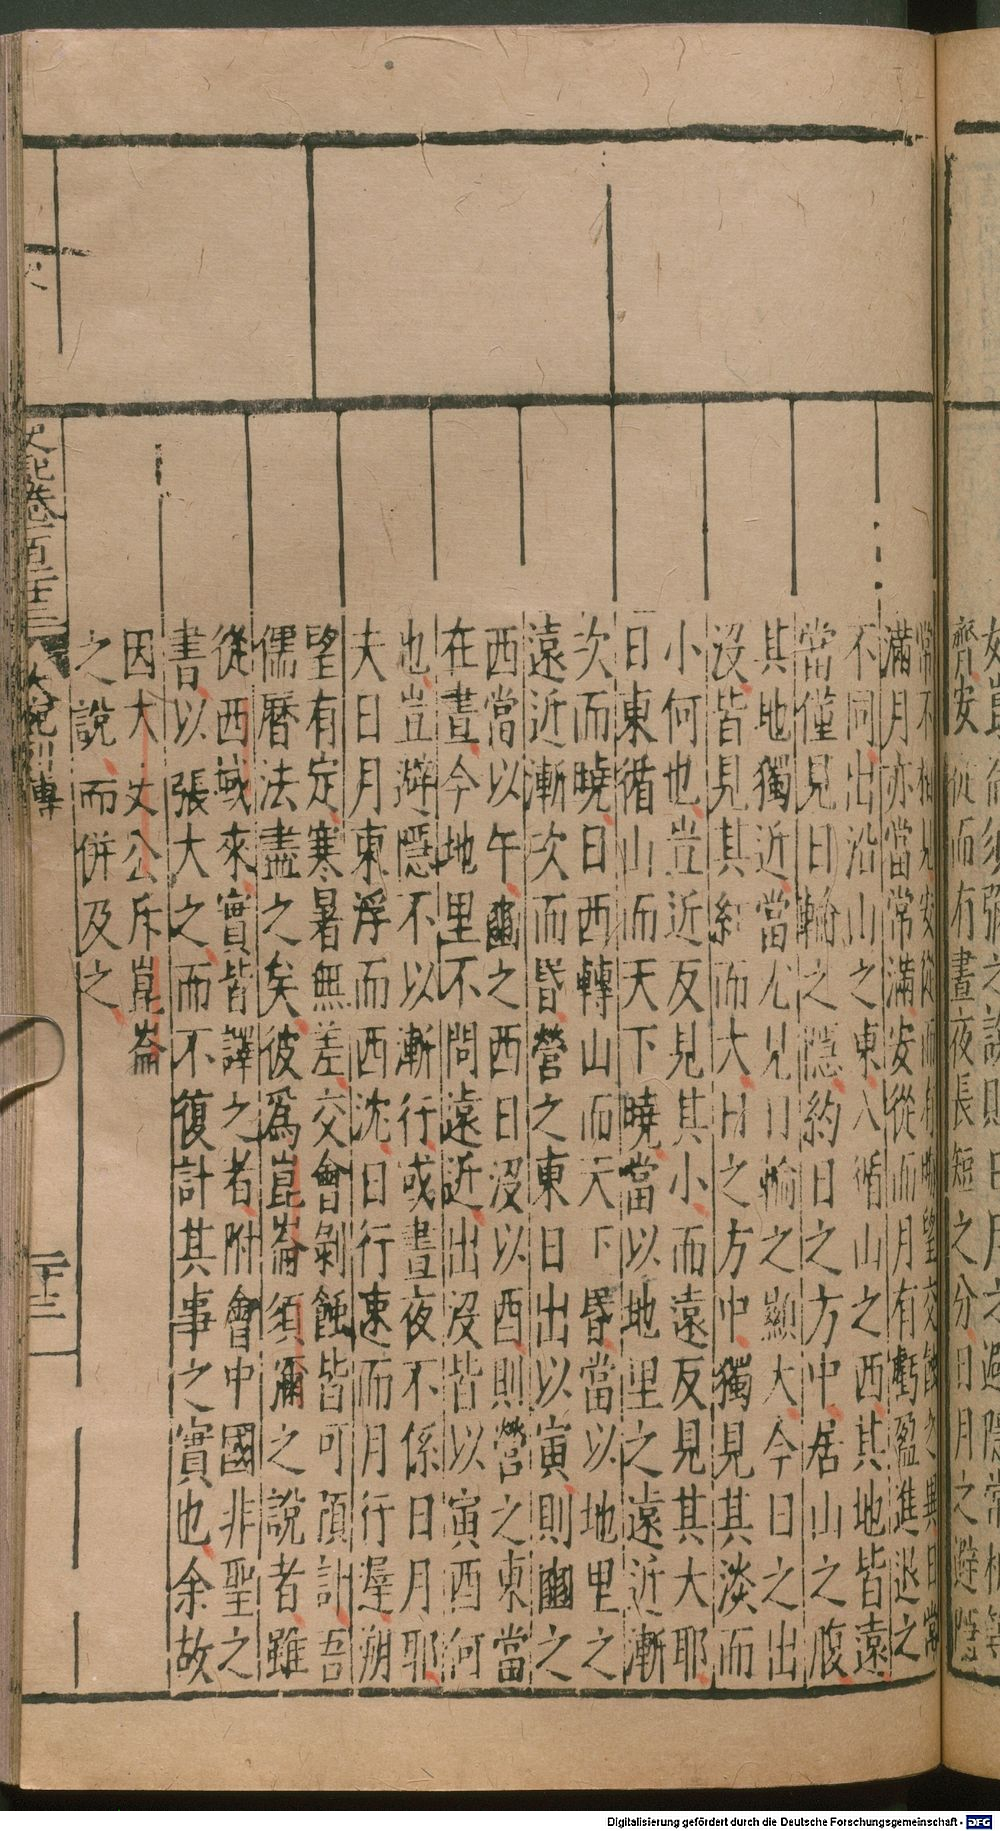 齊安從而有晝夜長短之分日月之避隱
常不相見安從而有晦望交蝕之異日常
滿月亦當常滿安從而月有虧盈進退之
不同出沿山之東入循山之西其地皆遠
當僅見日輪之隱約日之方中居山之腹
其地獨近當尤見日輪之顯大今日之出
沒皆見其紅而大日之方中獨見其淡而
小何也豈近反見其小而遠反見其大耶
日東循山而天下曉當以地里之遠近漸
次而曉日西轉山而天下昏當以地里之
遠近漸次而昏營之東日出以寅則豳之
西當以午豳之西日沒以酉則營之東當
在晝今地里不問遠近出沒皆以寅酉何
也豈避隱不以漸行或晝夜不係日月耶
夫日月東浮而西沈日行速而月行遲朔
望有定寒暑無差交會剝蝕皆可預計吾
儒曆法盡之矣彼爲崑崙須瀰之說者雖
從西域來實皆譯之者附會中國非聖之
書以張大之而不復計其事之實也余故
因大丈公斥崑崙
之說而併及之
史記卷一百二十三
大宛列傳
二十三
Digitalisierung gefördert durch die Deutsche Forschungsgemeinschaft - DFG